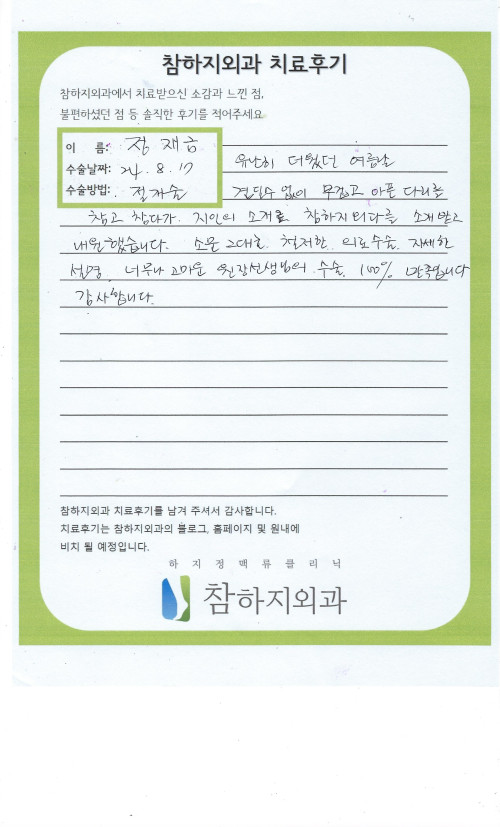 참하지외과 치료후기
참하지외과에서 치료받으신 소감과 느낀 점,
불편하셨던 점 등 솔직한 후기를 적어주세요
이 름: 정재금
수술날짜: 24. 8. 17
수술방법: 절개술
유난히 더웠던 여름날
견딜수 없이 무겁고 아픈 다리를
참고 참다가 지인의 소개로 참하지외과를 소개받고
내원했습니다. 소문 그대로 철저한 의료수술 자세한
설명 너무나 고마운 원장선생님의 수술 100% 만족입니다
감사합니다.
참하지외과 치료후기를 남겨 주셔서 감사합니다.
치료후기는 참하지외과의 블로그, 홈페이지 및 원내에
비치 될 예정입니다.
하지정맥류클리닉
참하지외과